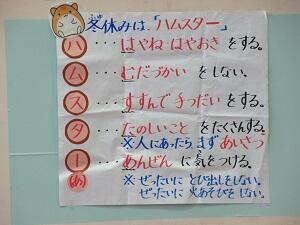 冬休みは、「ハムスター」
ハ・・・はやね はやおき をする。
ム・・・むだづかい をしない。
ス・・・すすんで手つだい をする。
タ・・・たのしいこと をたくさんする。
※人にあったら まず あいさつ
ー・・・あんぜん に気をつける。
(あ)
※ぜったいに とび出しをしない。
ぜったいに 火あそびをしない。